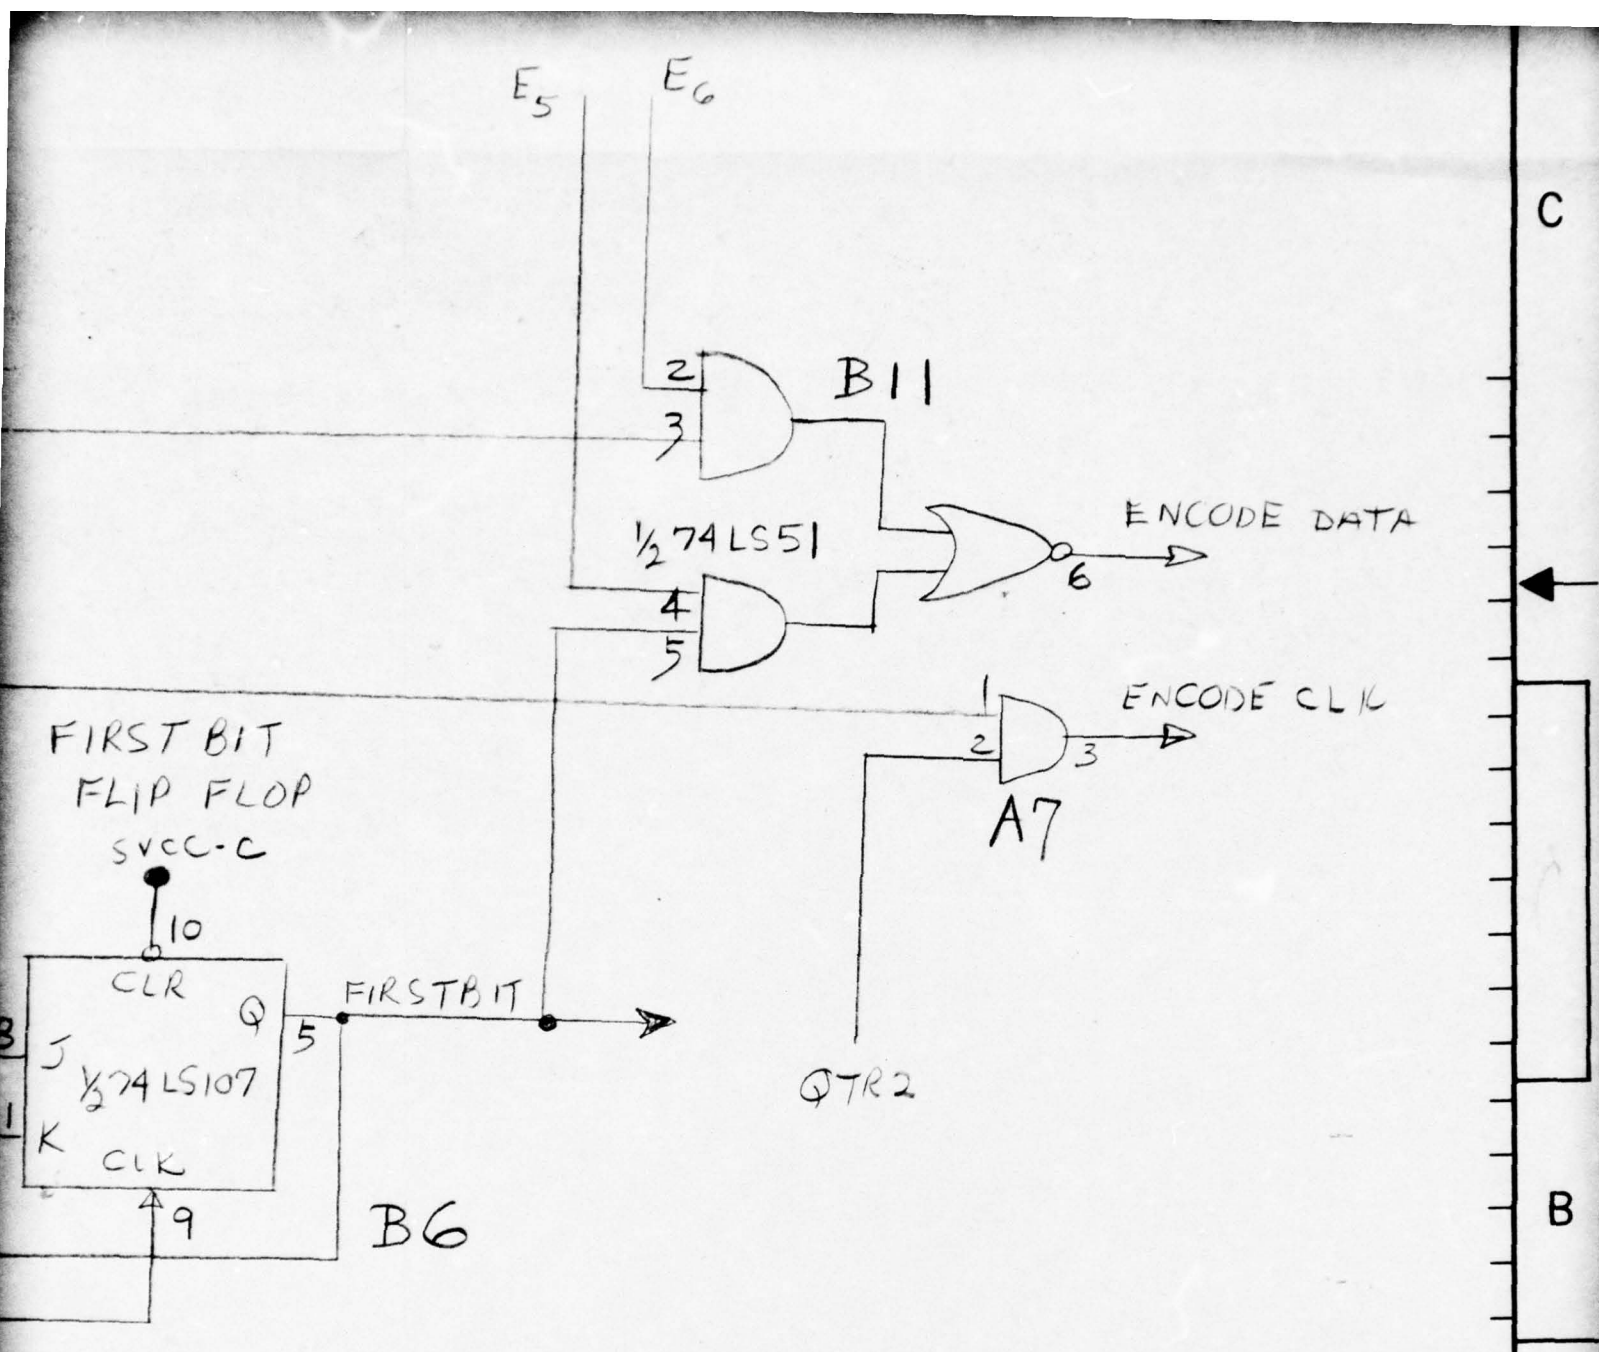 E5 E6
C
2 B11
3
1/2 74LS51
ENCODE DATA
6
4
5
1 ENCODE CLK
2 3
A7
FIRST BIT
FLIP FLOP
5VCC-C
10
CLR
Q FIRSTBIT
5
8
J
1/2 74LS107
QTR2
1
K
CLK
9 B6
B